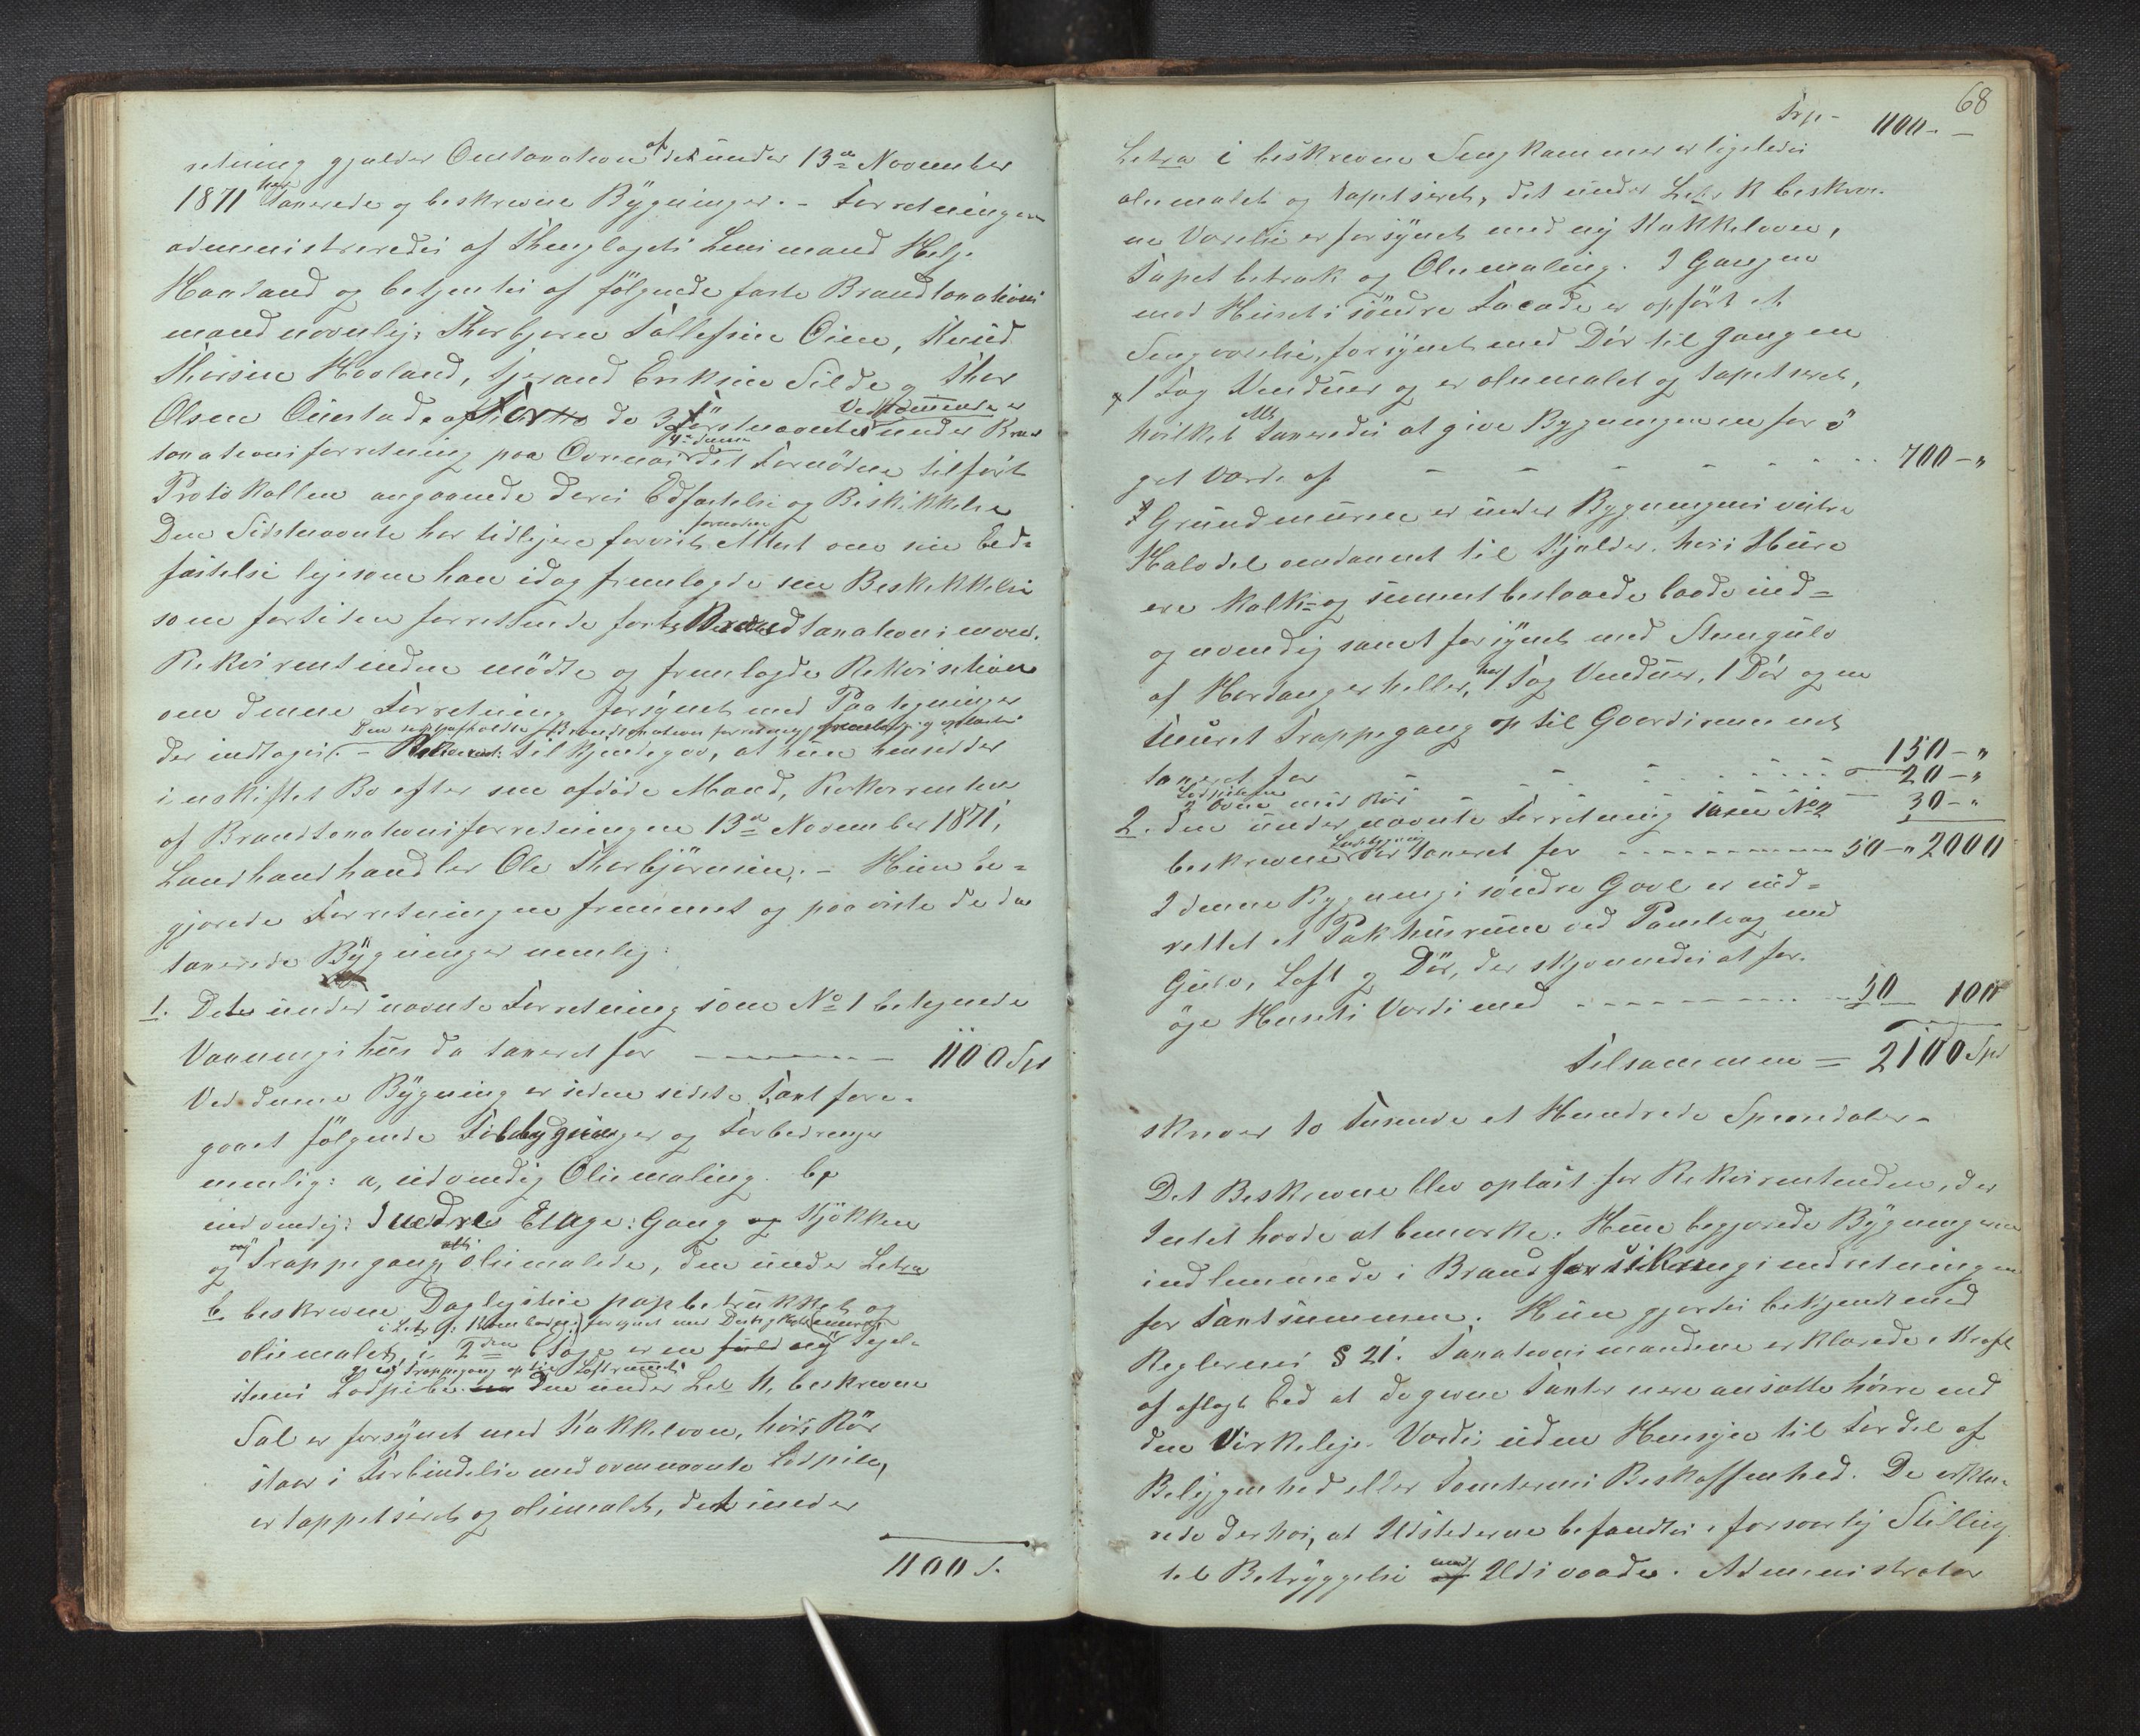 retning gjælder Omtaxation af det under 13de November
1871 her taxerede og beskrevne Bygninger. - Forretningen
administreredes af Thinglagets Lensmand Helje
Haaland og betjentes af følgende faste Brandtaxations
mænd navnlig: Thorbjørn Tollefsen Oien, Knud
Thorsen Hovland, Sjovand Eriksen Silde og Thor
Olsen Ourstad, af de 3 første Vedkommende er
Førstnævnte under Brand
taxationsforretning paa det Fornødne tilført
Protokollen angaaende deres Edfæstelse og Beskikkelse
Den Sidstnævnte har tidligere forevist Attest om sin Eed-
fæstelse ligesom han idag fremlagde sin Beskikkelse
som fortiden forrettende faste Brandtaxationsmand.
Rekvirentinden mødte og fremlagde Rekvisition
om denne Forretning forsynet med Paategninger
Den sidst afholdte Brandtaxationsforretning fremlagdes og oplæstes
der indtages. - Rekvirent: tilkjendegav, at hun hensidder
i uskiftet Bo efter sin afdøde Mand, Rekvirenten
af Brandtaxationsforretningen 13de November 1871,
Landhandhandler Ole Thorbjørnsen. - Hun be-
gjærede Forretningen fremmet og paaviste de da
taxerede Bygninger nemlig:
1. Det under nævnte Forretning som No 1 betegnede
Vaaningshus da taxeret for - - - - 1100 Spd
Ved denne Bygning er siden sidste Taxt fore-
gaaet følgende Tilbygninger og Forbedringer
nemlig: a, udvendig Oliemaling. b,
indvendig: I nedre Etage: Gang og Kjøkken
og Trappegang alt oliemalede, den under Letra
b beskrevne Dagligstue papbetrukket og
oliemalet, i 2den Etage er en ny Tegl-
og ny Trappegang op til Loftrummet
steens Lodpibe. Den under Let H. beskrevne
Sal er forsynet med Kakkelovn, hvis Rør
staar i Forbindelse med ovennævnte Lodpibe,
er tappetseret og oliemalet, det under
1100 S.
68
Trp- 1100- -
Letra i beskrevne Sengkammer er ligeledes
oliemalet og tapetseret, det under Letr K beskrev-
ne Værelse er forsynet med ny Kakkelovn,
Tapet betræk og Oliemaling. I Gangen
mod Husets søndre Facade er opført et
Sengværelse, forsynet med Dør til Gangen
1 Fag Vinduer og er oliemalet og tapetseret,
hvilket Alt taxeredes at give Bygningen en forø
get Værdi af - - - - - - 700 - "
Grundmuren er under Bygningens vestre
Halvdel omdannet til Kjælder, hvis Mure
ere kalk- og cement beslaaede baade ind-
og udvendig samt forsynet med Steengulv
af Hardangerheller, har 1 Fag Vinduer, 1 Dør og en
muret Trappegang op til Gaardsrummet
taxeret for - - - - - - 150 - "
Lodpiben - - - - 20 - "
2 Ovne med Rør - - - - 30 - "
2. Den under nævnte Forretning som No 2
beskrevne taxeret for - - - - - - 50 - " 2000
I denne Bygnings søndre Gavl er ind-
rettet et Pakhusrum ved Panelvæg med
Gulv, Loft og Dør, der skjønnedes at for-
øge Husets Værdi med - - - - - - 50 100
Tilsammen = 2100 Spd
skriver to Tusende et Hundrede Speciedaler -
Det Beskrevne blev oplæst for Rekvirentinden, der
Intet havde at bemærke. Hun begjærede Bygningerne
indlemmede i Brandforsikringsindretningen
for Taxtsummen. Hun gjordes bekjendt med
Reglernes § 21. Taxationsmændene erklærede i Kraft
af aflagt Eed at de givne Taxter ikke ere ansatte høiere end
den virkelige Værdi uden Hensyn til Fordel af
Beliggenhed eller Tomternes Beskaffenhed. De erklæ-
rede derhos, at Ildstederne befandtes i forsvarlig Stilling
til Betryggelse mod Ildsvaade. Administrator